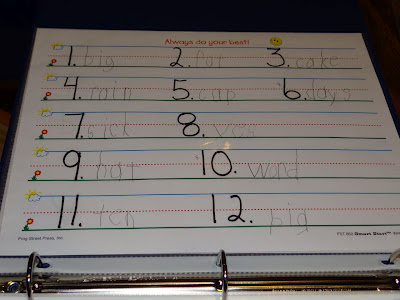 Always do your best!
1. big 2. 3. cake
4. rain 5. cup 6.
7. sick 8. yes
9. hat 10.
11. ten 12. pig
Frog Street Press, Inc. Smart Start™